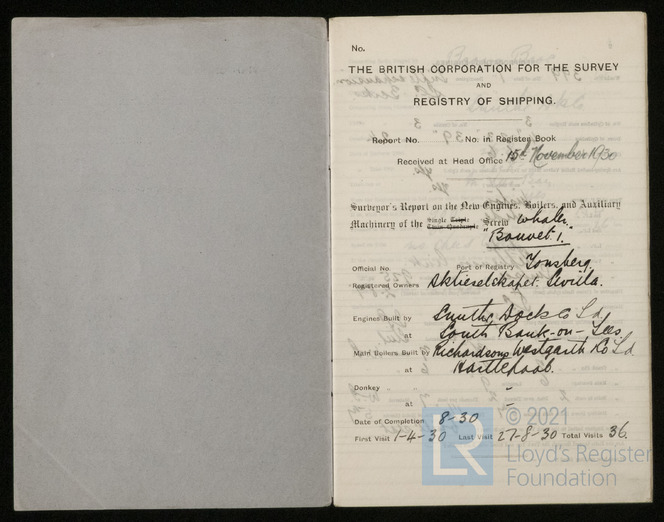 No.
THE BRITISH CORPORATION FOR THE SURVEY
AND
REGISTRY OF SHIPPING.
Report No. No. in Register Book
Received at Head Office 15th November 1930
Surveyor's Report on the New Engines, Boilers, and Auxiliary
Machinery of the Single Triple Twin Quadruple Screw Whaler
"Bouvet 1."
Official No. Port of Registry Tonsberg
Registered Owners Aktieselskapet
Engines Built by Smiths Dock Co Ld
at South Bank-on-Tees
Main Boilers Built by Richardsons Westgarth & Co Ld
at Hartlepool.
Donkey " " -
at -
Date of Completion 8-30
First Visit 1-4-30 Last Visit 27-8-30 Total Visits 36.
LR © 2021
Lloyd's Register
Foundation